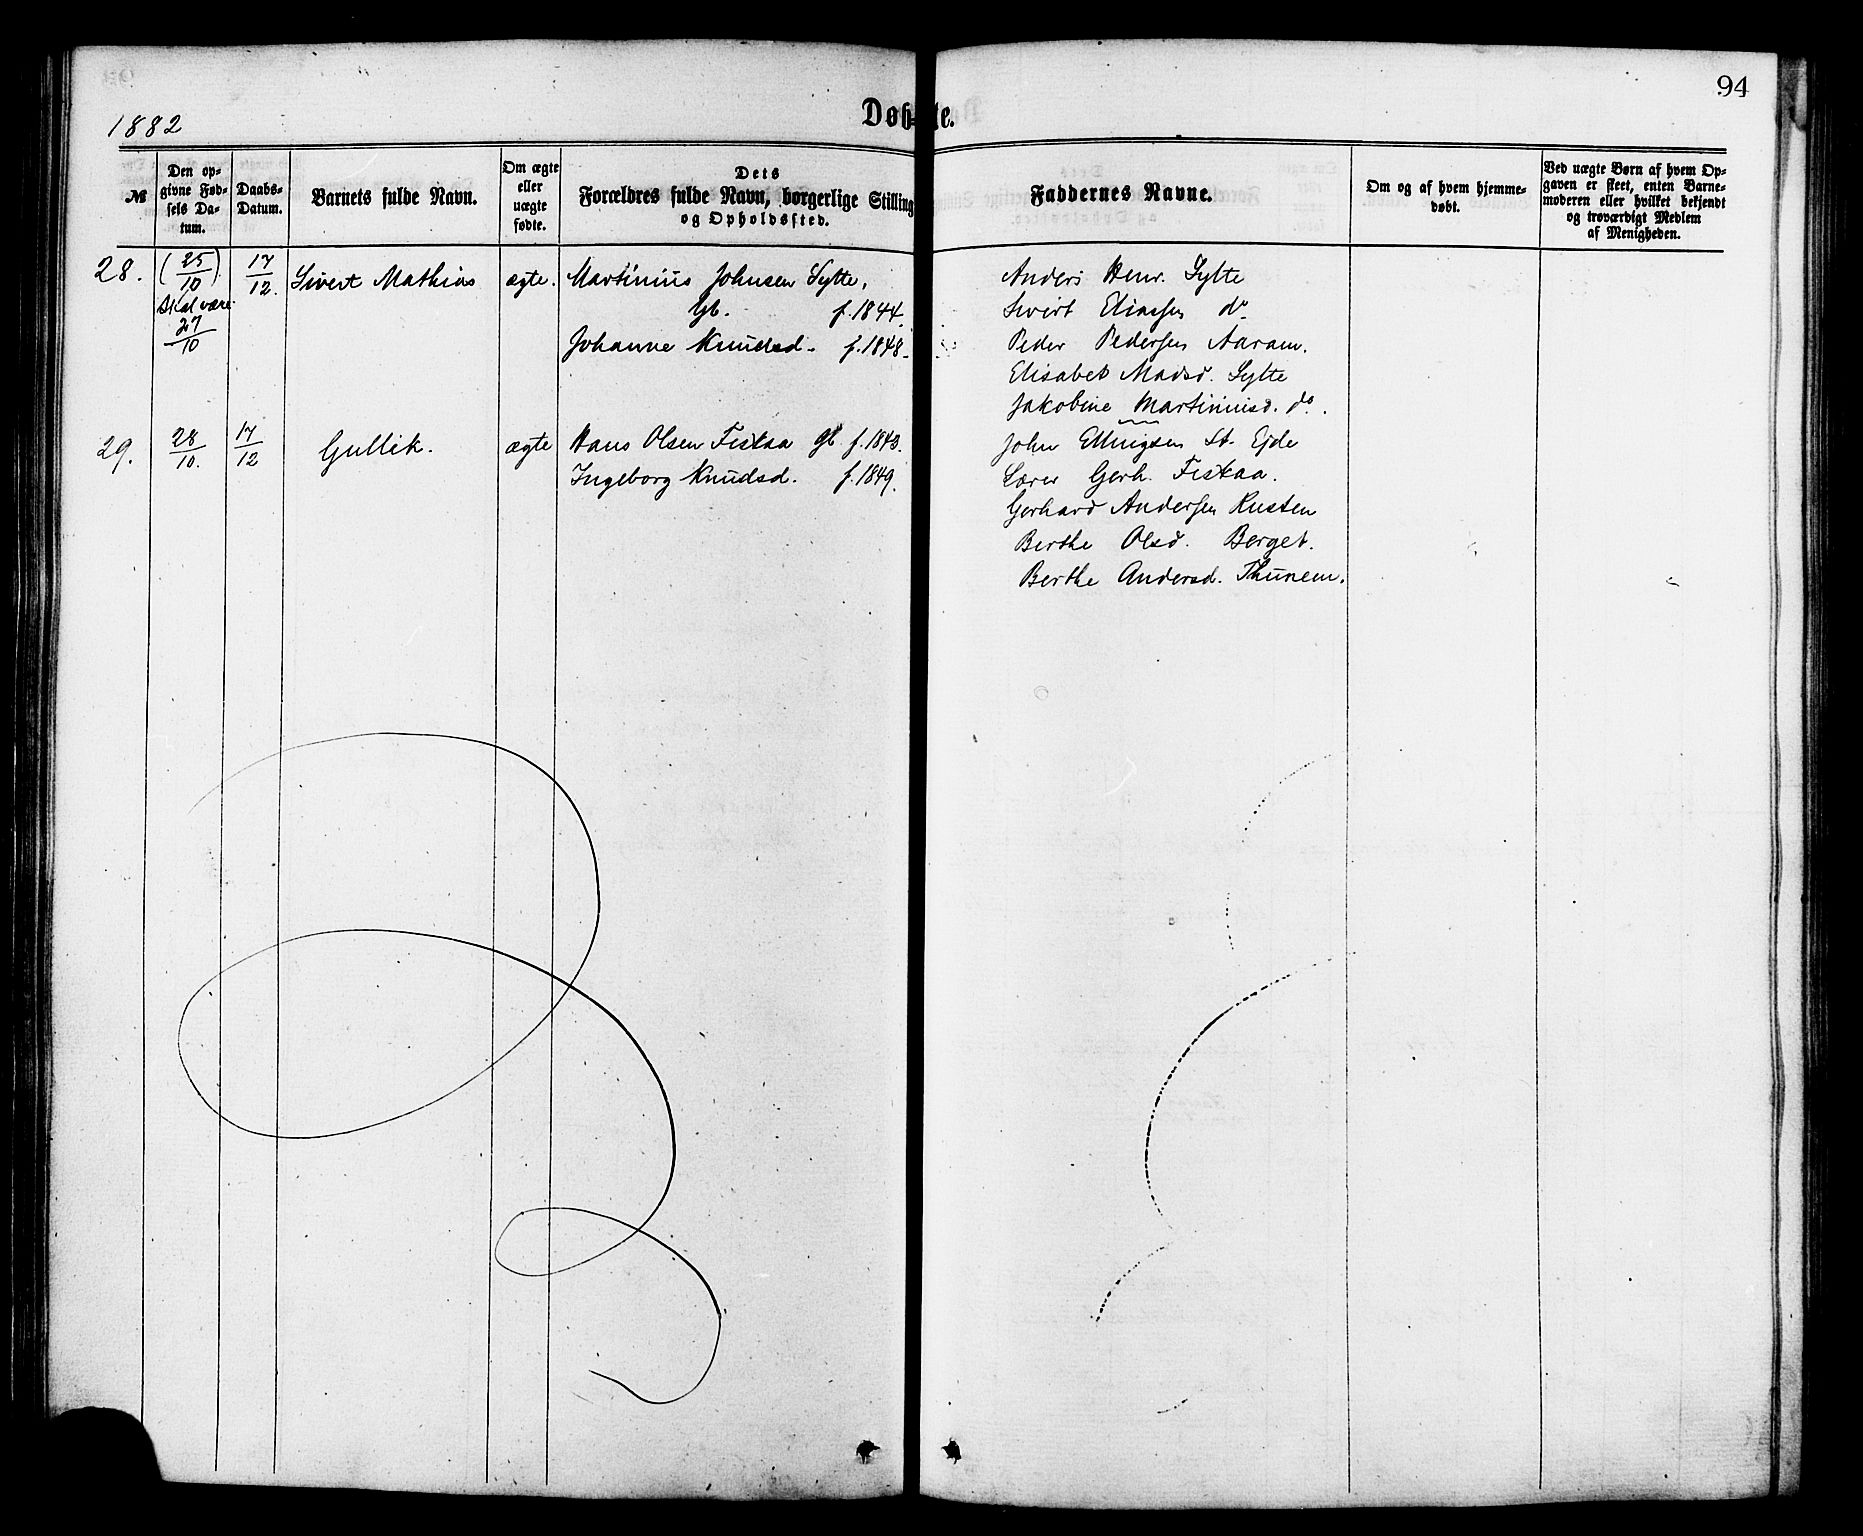 94
1882
Døbte.
№
Den op-
givne Fød-
sels Da-
tum.
Daabs-
Datum.
Barnets fulde Navn.
Om ægte
eller
uægte
fødte.
Dets
Forældres fulde Navn, borgerlige Stilling
og Opholdssted.
Faddernes Navne.
Om og af hvem hjemme-
døbt.
Ved uægte Børn af hvem Op-
gaven er skeet, enten Barne-
moderen eller hvilket bekjendt
og troværdigt Medlem
af Menigheden.
28. (25/10) 17/12. Sivert Mathias ægte. Martinius Johnsen Sylte,
Skal være
27/10
Gb. f. 1844.
Johanne Knudsd. f. 1848.
Anders Henr. Sylte
Sivert Eliassen do
Peder Pedersen Aaram.
Elisabet Madsd. Sylte
Jakobine Martiniusd. do.
29. 28/10. 17/12 Gullik. ægte Hans Olsen Fiskaa gb. f. 1843.
Ingeborg Knudsd. f. 1849.
John Ellingsen St. Ejde
Lærer Gerh. Fiskaa.
Gerhard Andersen Rusten
Berthe Olsd. Berget.
Berthe Andersd. Thunem.